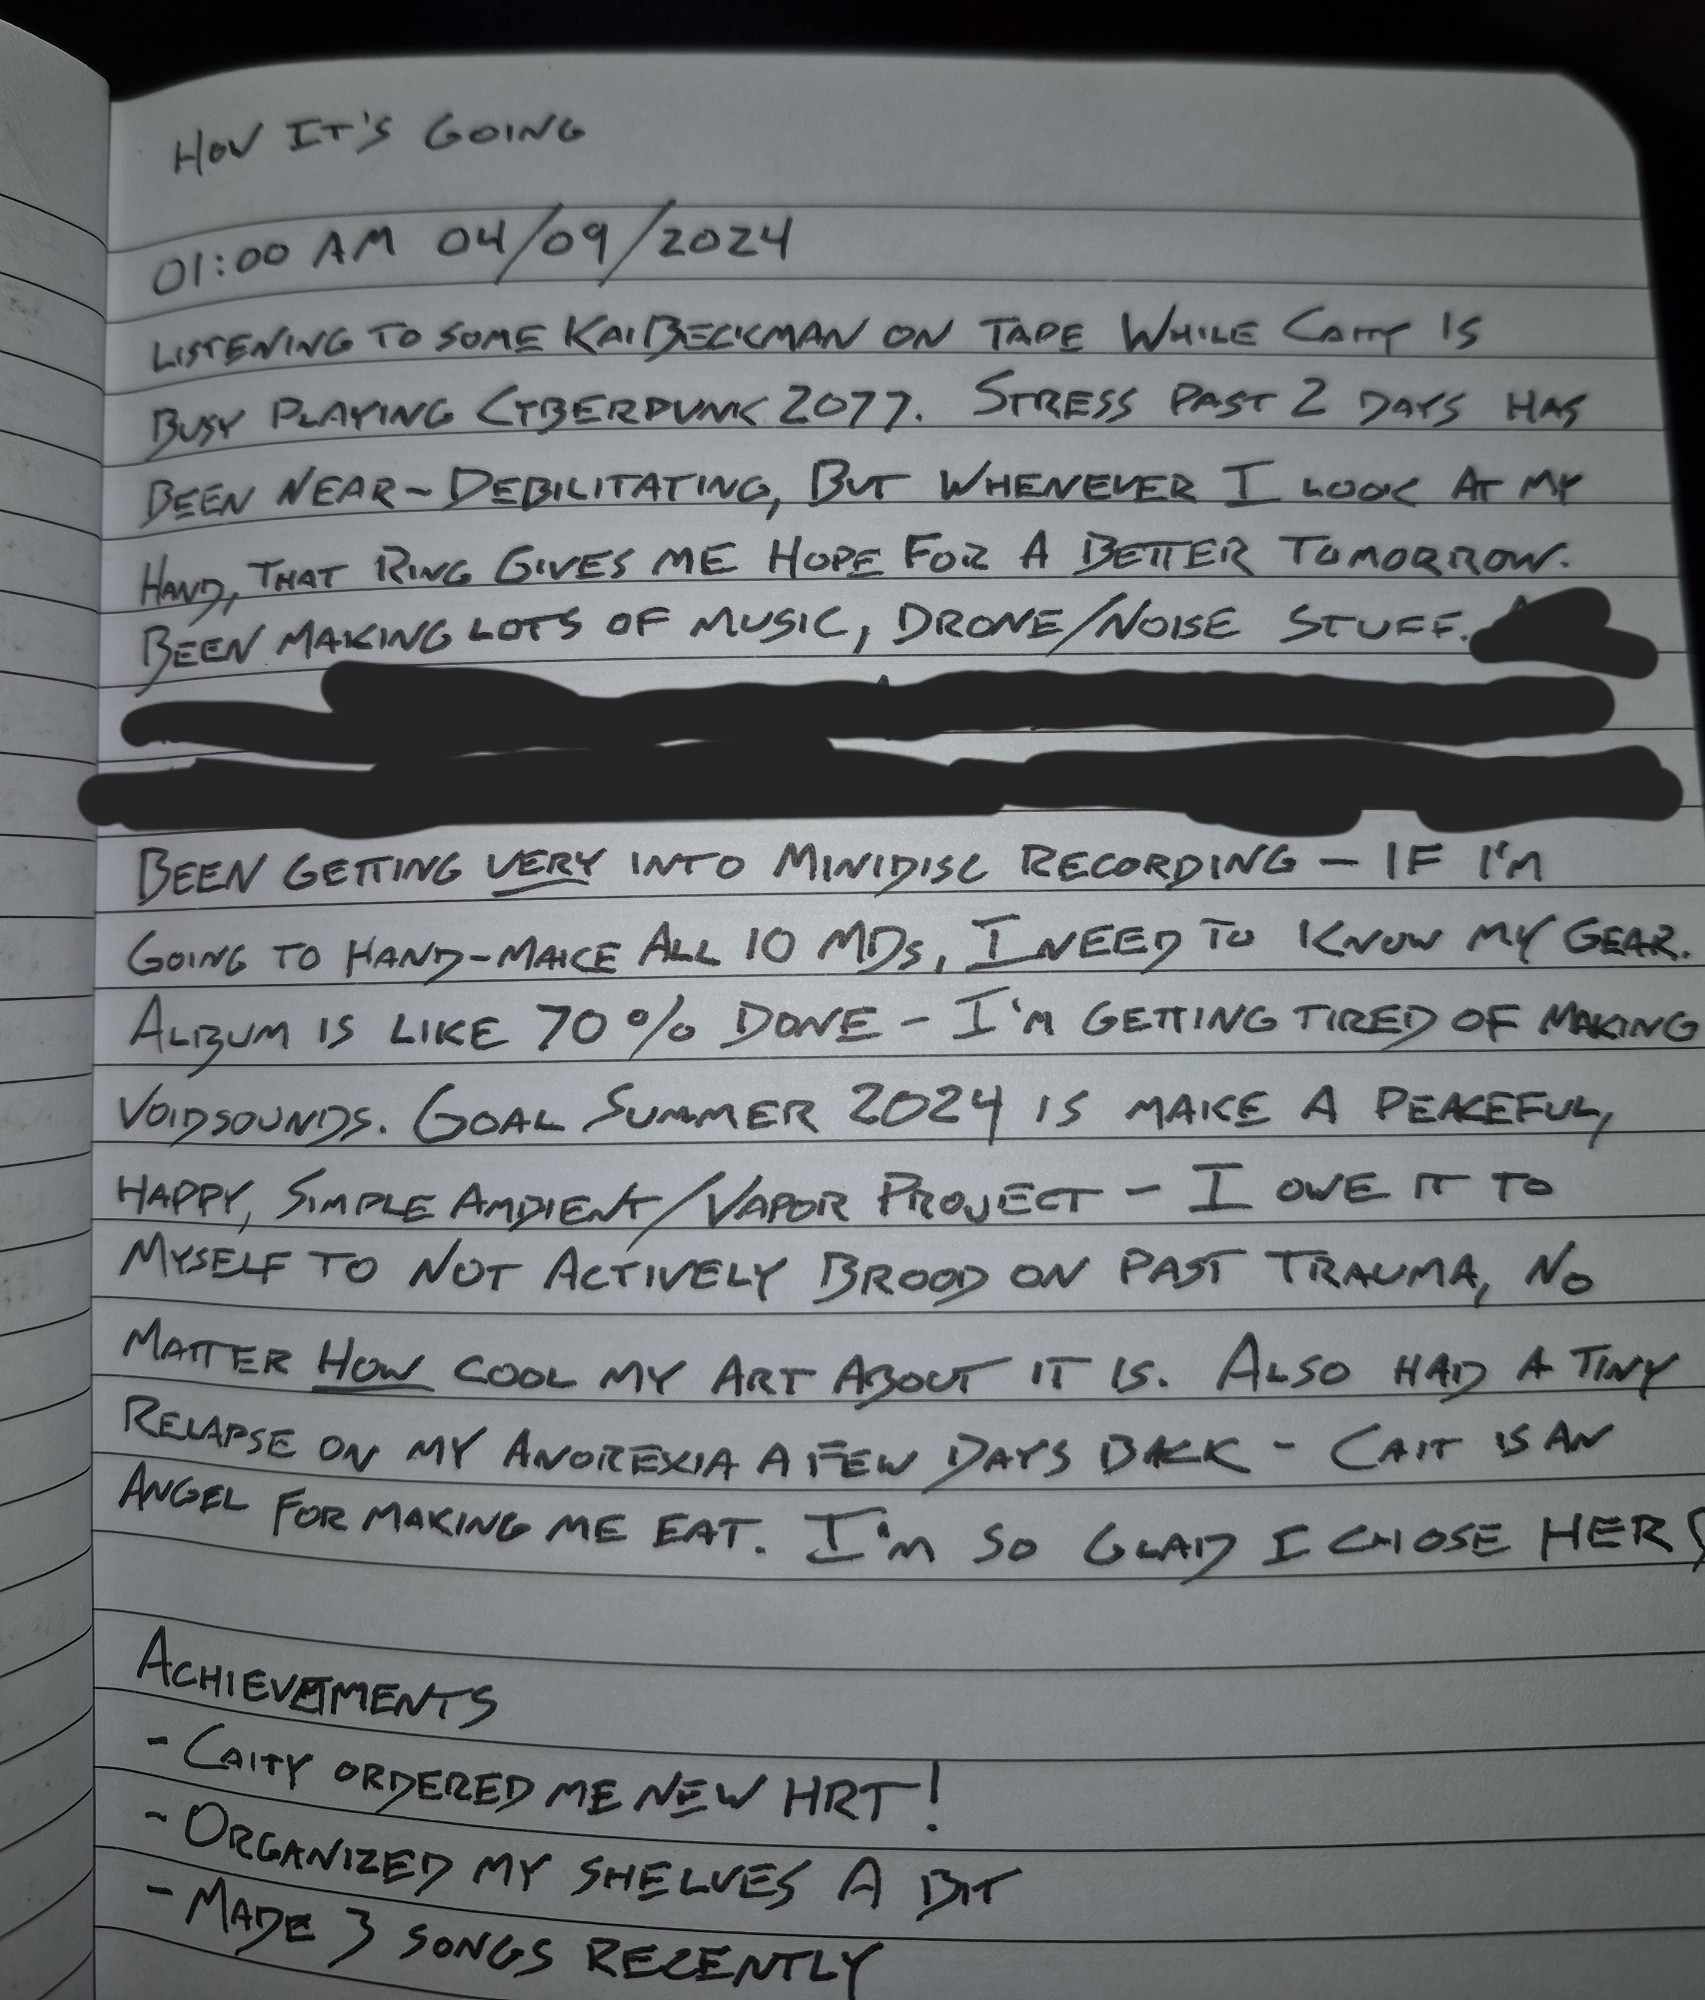 HOW IT'S GOING
01:00 AM 04/09/2024
LISTENING TO SOME KAI BECKMAN ON TAPE WHILE CAITY IS
BUSY PLAYING CYBERPUNK 2077. STRESS PAST 2 DAYS HAS
BEEN NEAR-DEBILITATING, BUT WHENEVER I LOOK AT MY
HAND, THAT RING GIVES ME HOPE FOR A BETTER TOMORROW.
BEEN MAKING LOTS OF MUSIC, DRONE/NOISE STUFF.
BEEN GETTING VERY INTO MINIDISC RECORDING - IF I'M
GOING TO HAND-MAKE ALL 10 MDs, I NEED TO KNOW MY GEAR.
ALBUM IS LIKE 70% DONE - I'M GETTING TIRED OF MAKING
VOIDSOUNDS. GOAL SUMMER 2024 IS MAKE A PEACEFUL,
HAPPY, SIMPLE AMBIENT/VAPOR PROJECT - I OWE IT TO
MYSELF TO NOT ACTIVELY BROOD ON PAST TRAUMA, NO
MATTER HOW COOL MY ART ABOUT IT IS. ALSO HAD A TINY
RELAPSE ON MY ANOREXIA A FEW DAYS BACK - CAIT IS AN
ANGEL FOR MAKING ME EAT. I'M SO GLAD I CHOSE HER
ACHIEVEMENTS
- CAITY ORDERED ME NEW HRT!
- ORGANIZED MY SHELVES A BIT
- MADE 3 SONGS RECENTLY